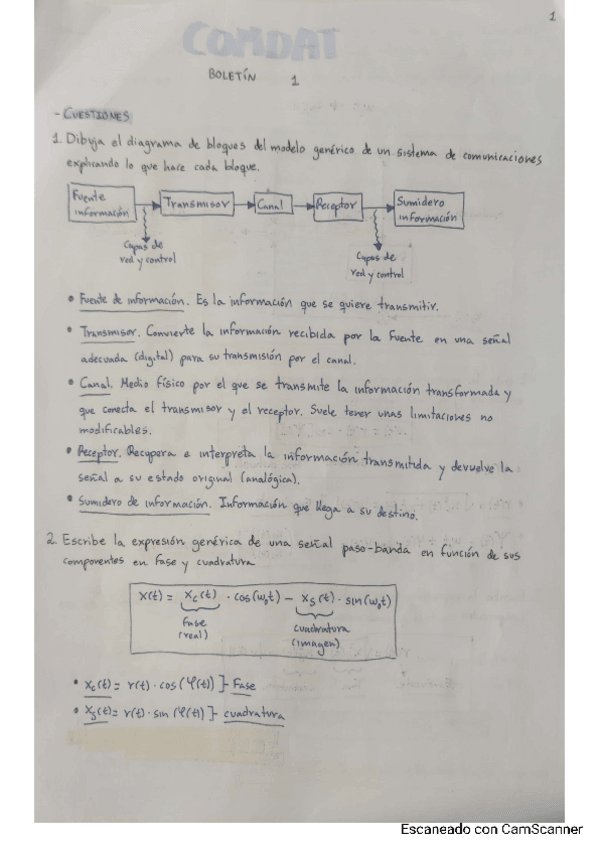 1
COMDAT
BOLETÍN 1
- CUESTIONES
1. Dibuja el diagrama de bloques del modelo genérico de un sistema de comunicaciones
explicando lo que hace cada bloque.
Fuente información
Transmisor
Canal
Receptor
Sumidero información
Capas de red y control
Capas de red y control
• Fuente de información. Es la información que se quiere transmitir.
• Transmisor. Convierte la información recibida por la Fuente en una señal
adecuada (digital) para su transmisión por el canal.
• Canal. Medio físico por el que se transmite la información transformada y
que conecta el transmisor y el receptor. Suele tener unas limitaciones no
modificables.
• Receptor. Recupera e interpreta la información transmitida y devuelve la
señal a su estado original (analógica).
• Sumidero de información. Información que llega a su destino.
2. Escribe la expresión genérica de una señal paso-banda en función de sus
componentes en fase y cuadratura
X(t) = Xc(t) · cos(ω₀t) - Xs(t) · sin(ω₀t)
Fase (real)
cuadratura (imagen)
• Xc(t) = r(t) · cos(φ(t))] - Fase
• Xs(t) = r(t) · sin(φ(t))] - cuadratura
Escaneado con CamScanner